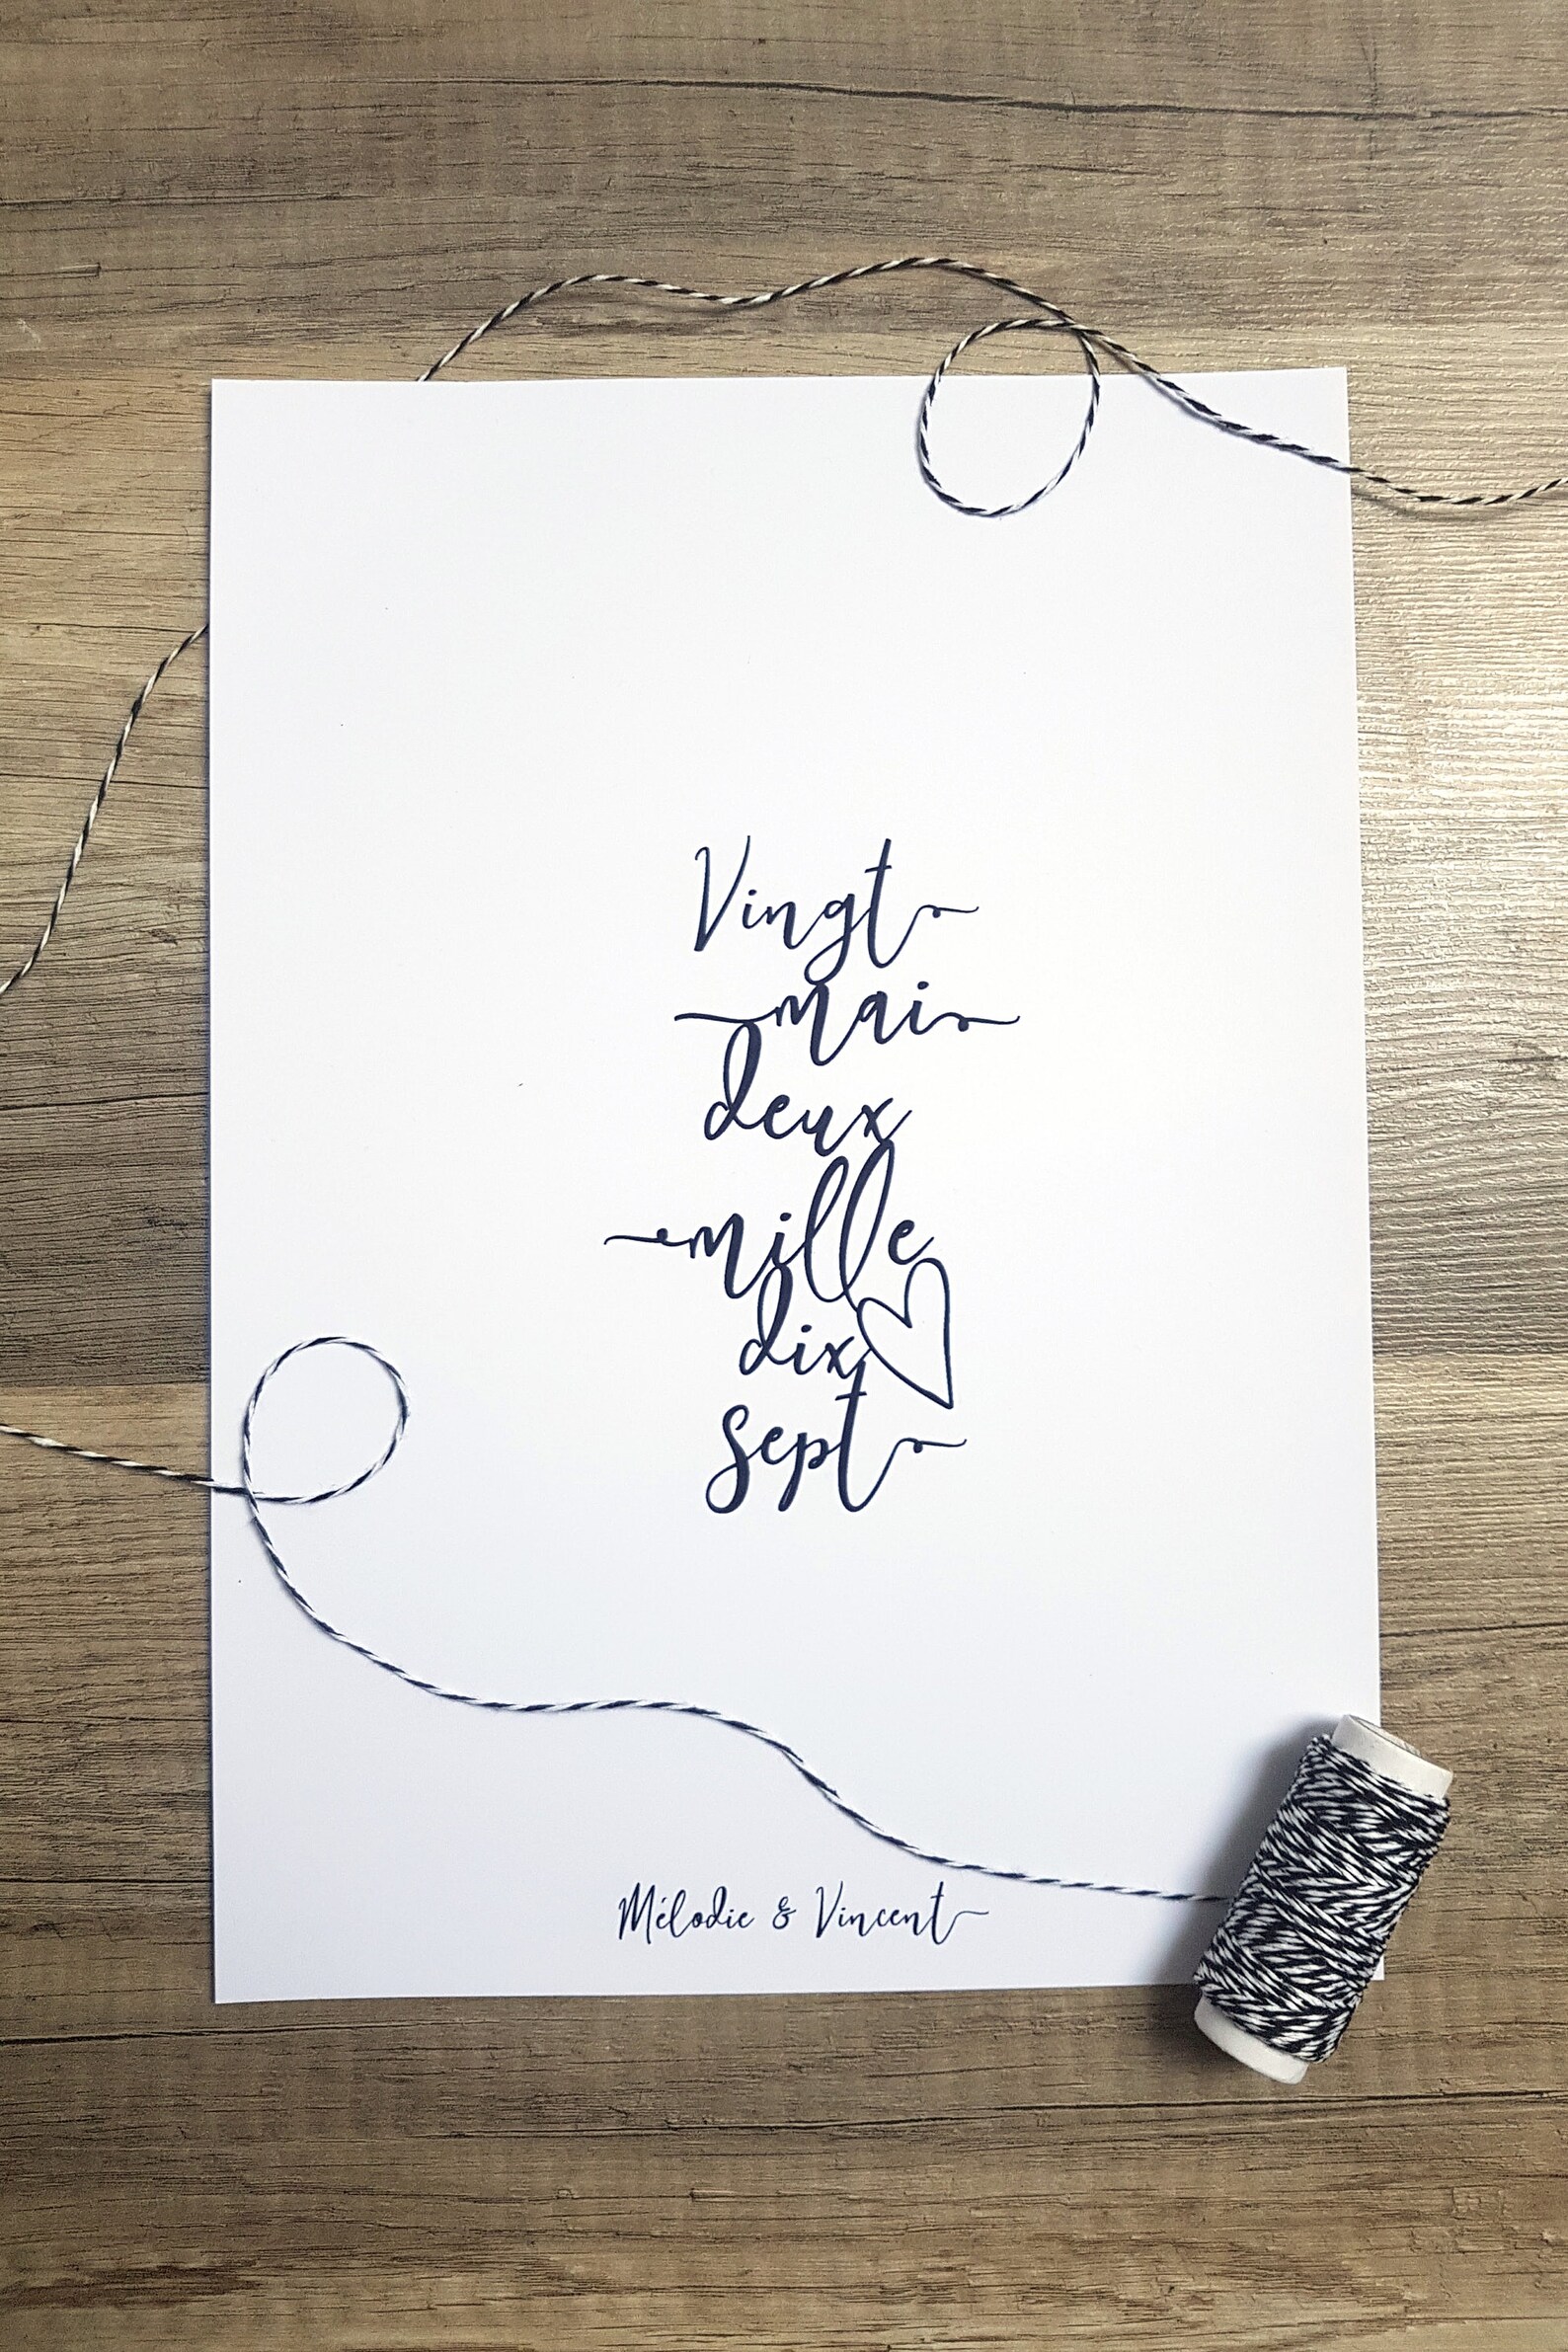 Vingt
mai
deux
mille
dix
sept
Mélodie & Vincent